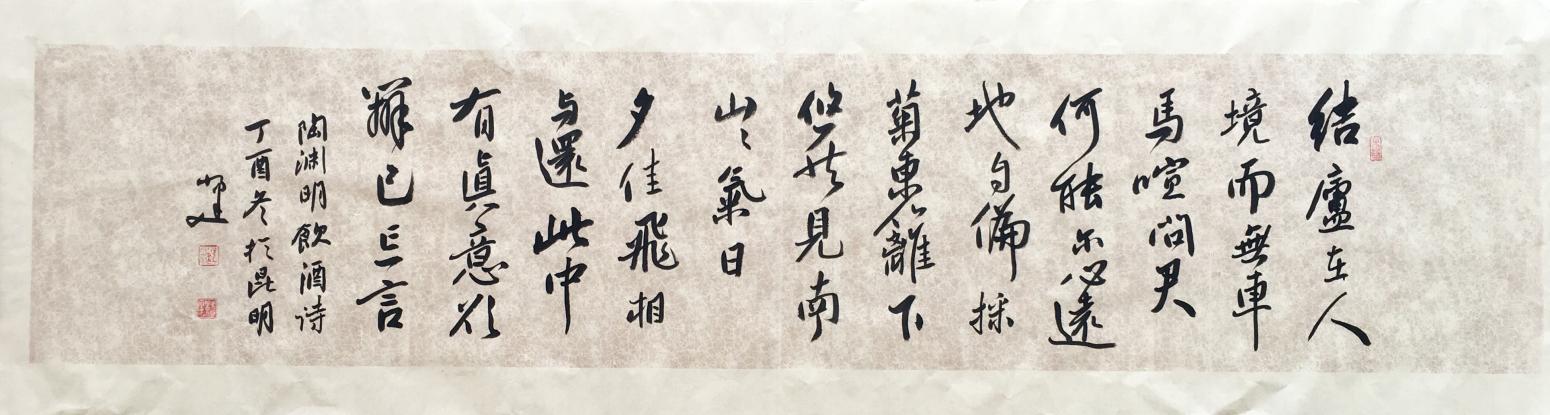 结廬在人
境而無車
馬喧问君
何能尔心遠
地自偏採
菊東籬下
悠然見南
山々氣日
夕佳飛相
与還此中
有真意欲
辨已忘言
陶渊明飲酒诗
丁酉冬於昆明